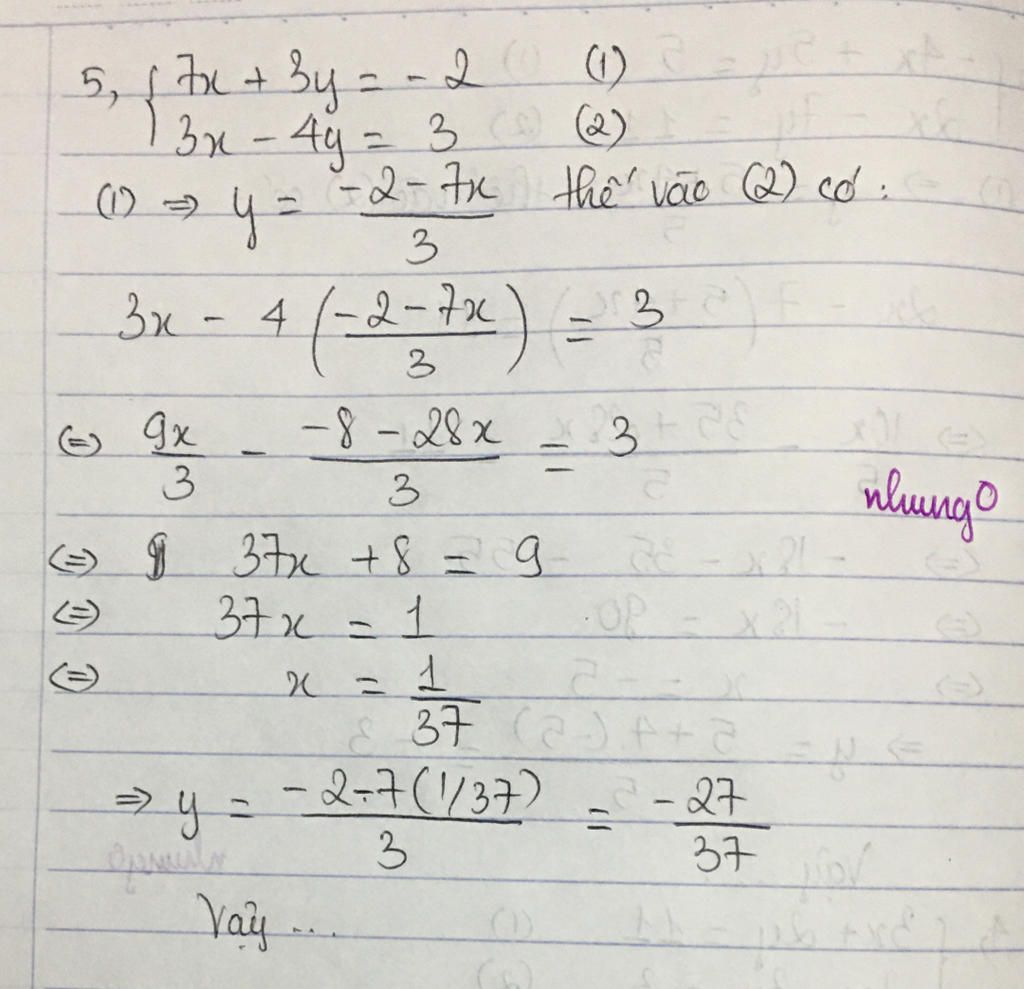 5, { 7x + 3y = -2 (1)
3x - 4y = 3 (2)
(1) ⇒ y = (-2 - 7x)/3 thế vào (2) có:
3x - 4 ((-2 - 7x)/3) = 3
⇔ 9x/3 - (-8 - 28x)/3 = 3
nhung0
⇔ 37x + 8 = 9
⇔ 37x = 1
⇔ x = 1/37
⇒ y = (-2-7(1/37))/3 = -27/37
Vậy ...